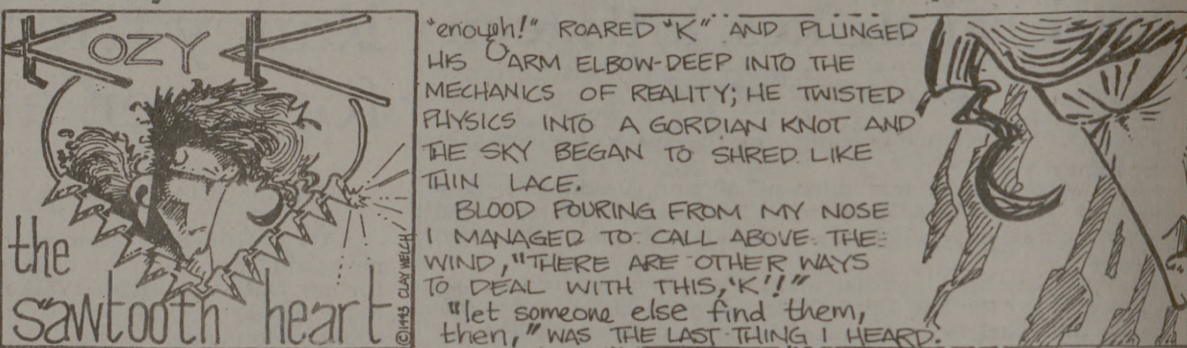 KOZY K
the
sawtooth heart
©1993 CLAY WELCH
"enough!" ROARED "K" AND PLUNGED
HIS ARM ELBOW-DEEP INTO THE
MECHANICS OF REALITY; HE TWISTED
PHYSICS INTO A GORDIAN KNOT AND
THE SKY BEGAN TO SHRED LIKE
THIN LACE.
BLOOD POURING FROM MY NOSE
I MANAGED TO CALL ABOVE THE
WIND, "THERE ARE OTHER WAYS
TO DEAL WITH THIS, 'K'!"
"let someone else find them,
then," WAS THE LAST THING I HEARD.